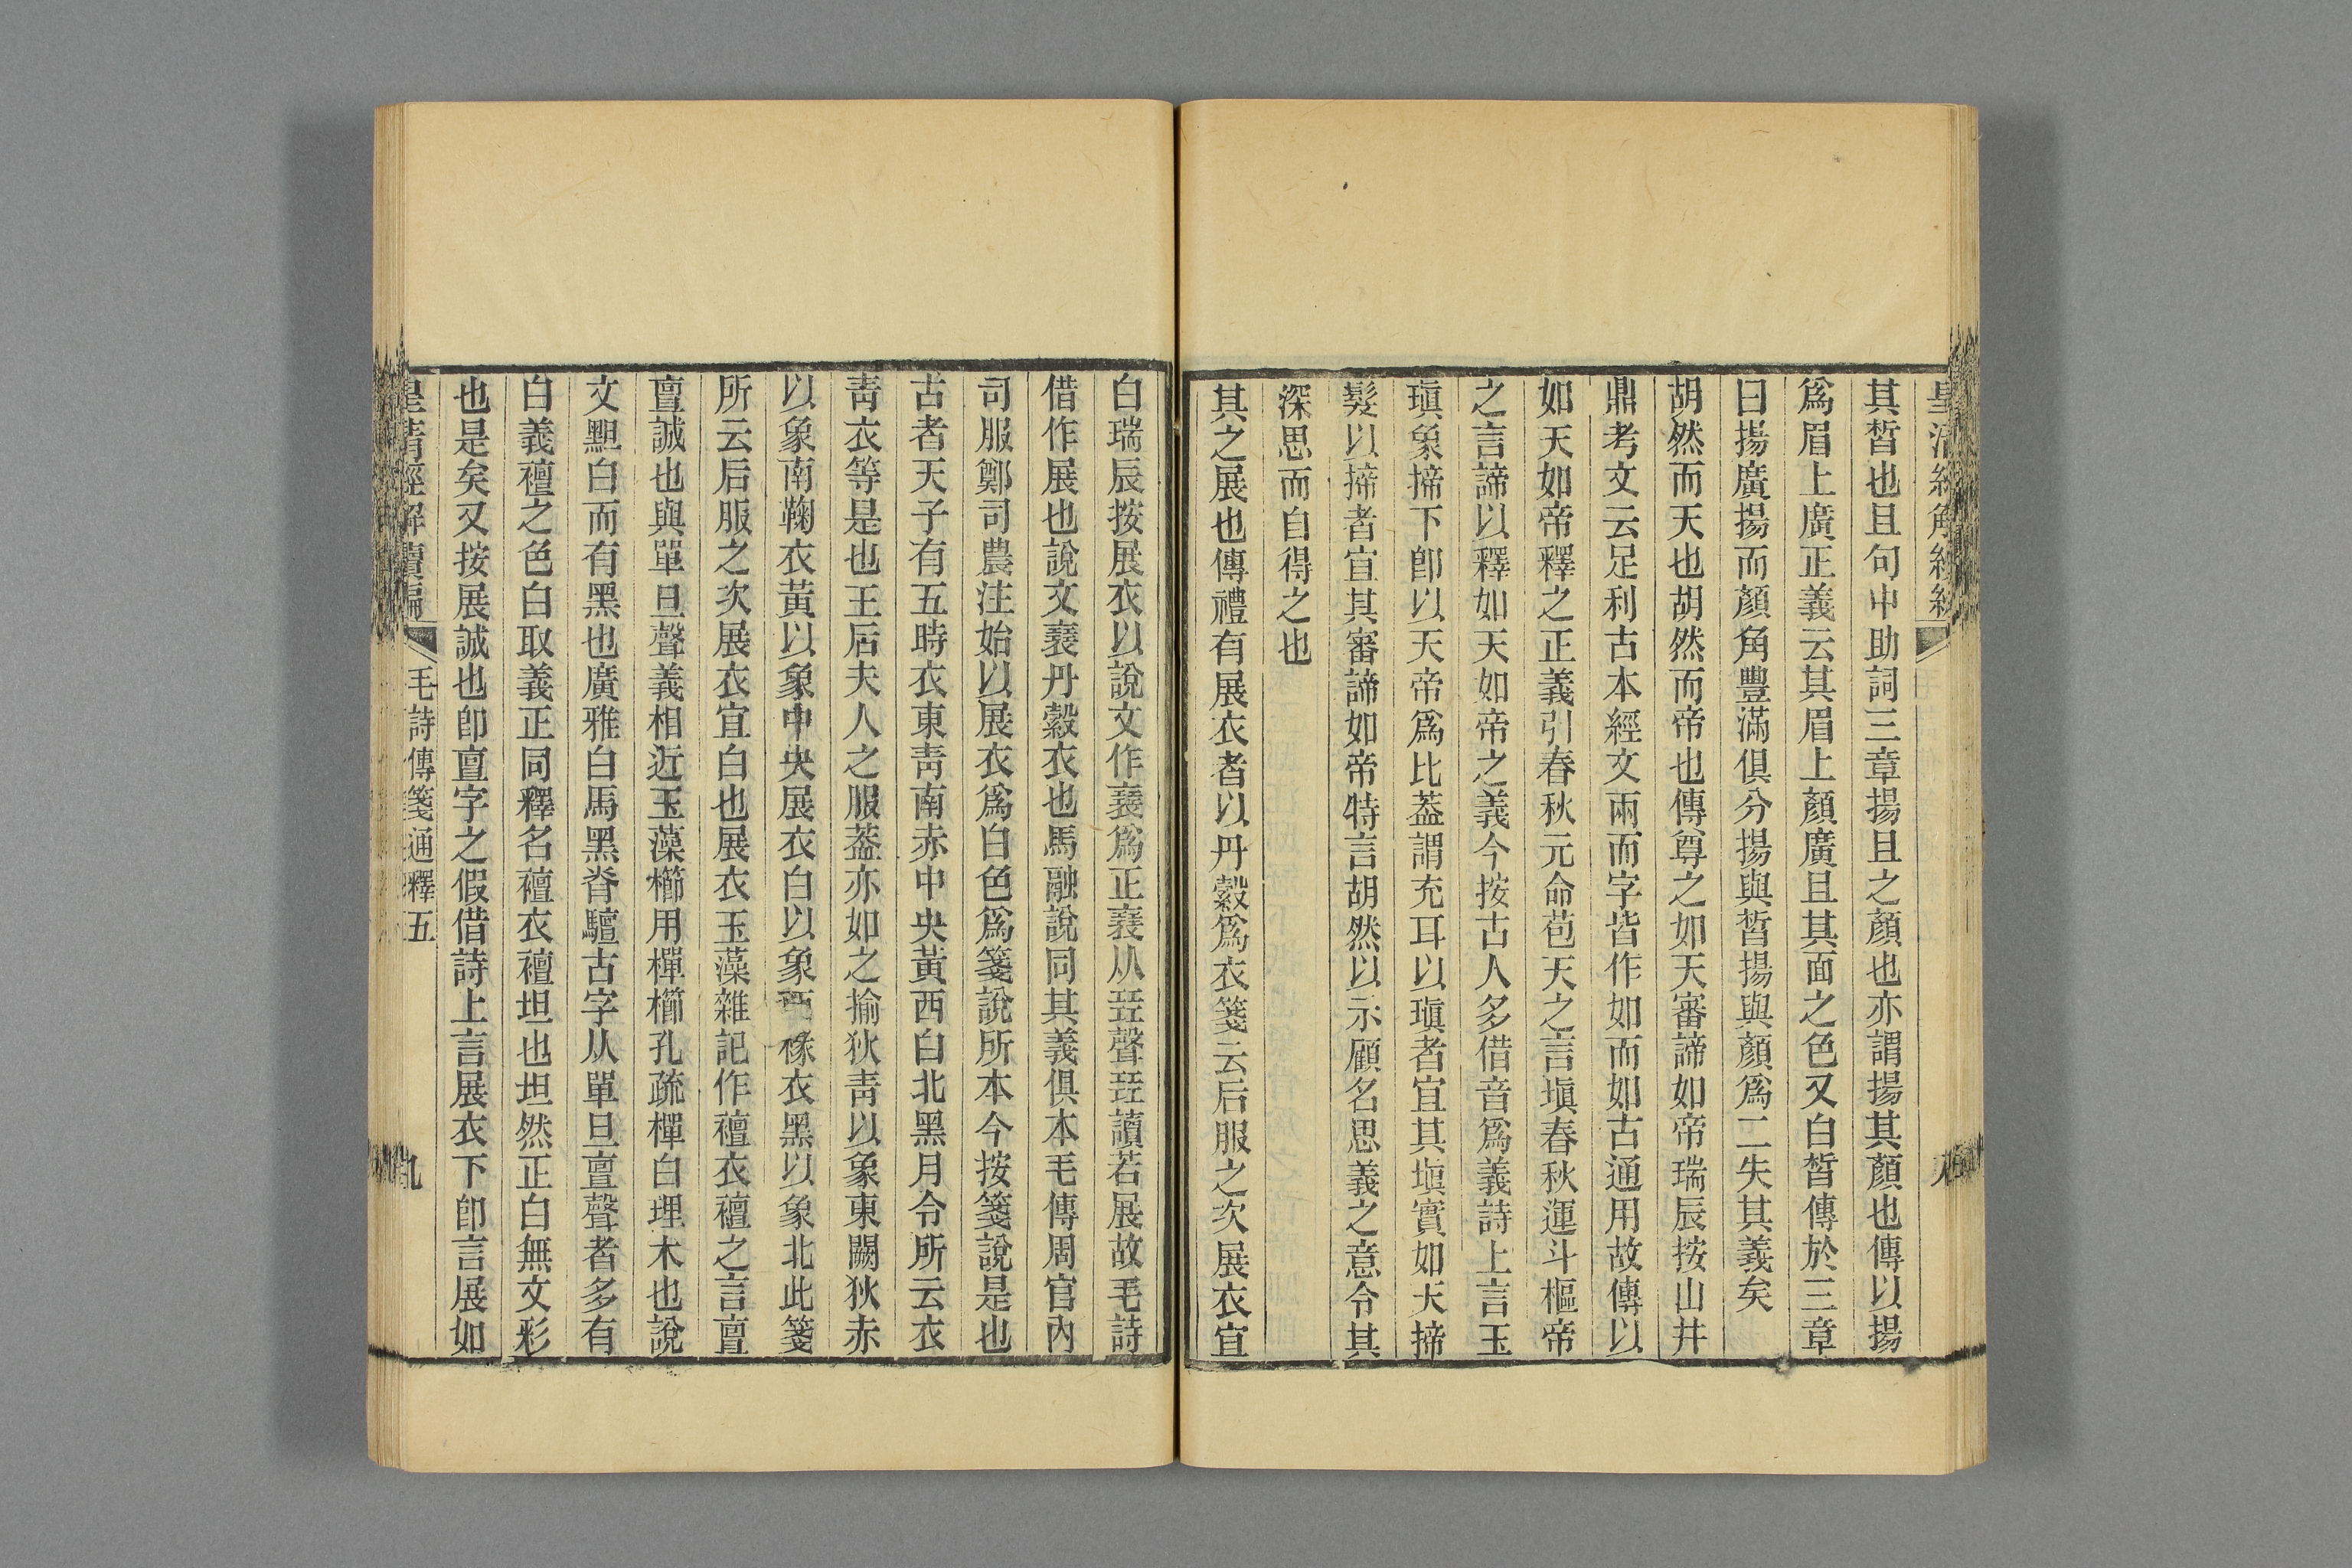 皇清經解續編
其晳也且句中助詞三章揚且之顏也亦謂揚其顏也傳以揚
爲眉上廣正義云其眉上顏廣且其面之色又白晳傳於三章
曰揚廣揚而顏角豐滿俱分揚與晳揚與顏爲二失其義矣
胡然而天也胡然而帝也傳尊之如天審諦如帝瑞辰按山井
鼎考文云足利古本經文兩而字皆作如而如古通用故傳以
如天如帝釋之正義引春秋元命苞天之言塡春秋運斗樞帝
之言諦以釋如天如帝之義今按古人多借音爲義詩上言玉
瑱象揥下卽以天帝爲比葢謂充耳以瑱者宜其塡實如天揥
髮以揥者宜其審諦如帝特言胡然以示顧名思義之意令其
深思而自得之也
其之展也傳禮有展衣者以丹縠爲衣箋云后服之次展衣宜
白瑞辰按展衣以說文作襄爲正襄从㠭聲㠭讀若展故毛詩
借作展也說文襄丹縠衣也馬融說同其義俱本毛傳周官內
司服鄭司農注始以展衣爲白色爲箋說所本今按箋說是也
古者天子有五時衣東靑南赤中央黃西白北黑月令所云衣
靑衣等是也王后夫人之服葢亦如之揄狄靑以象東闕狄赤
以象南鞠衣黃以象中央展衣白以象西褖衣黑以象北此箋
所云后服之次展衣宜白也展衣玉藻雜記作襢衣襢之言亶
亶誠也與單旦聲義相近玉藻櫛用樿櫛孔疏樿白理木也說
文黫白而有黑也廣雅白馬黑脊驙古字从單旦亶聲者多有
白義襢之色白取義正同釋名襢衣襢坦也坦然正白無文彩
也是矣又按展誠也卽亶字之假借詩上言展衣下卽言展如
皇淸經解續編 毛詩傳箋通釋五 九